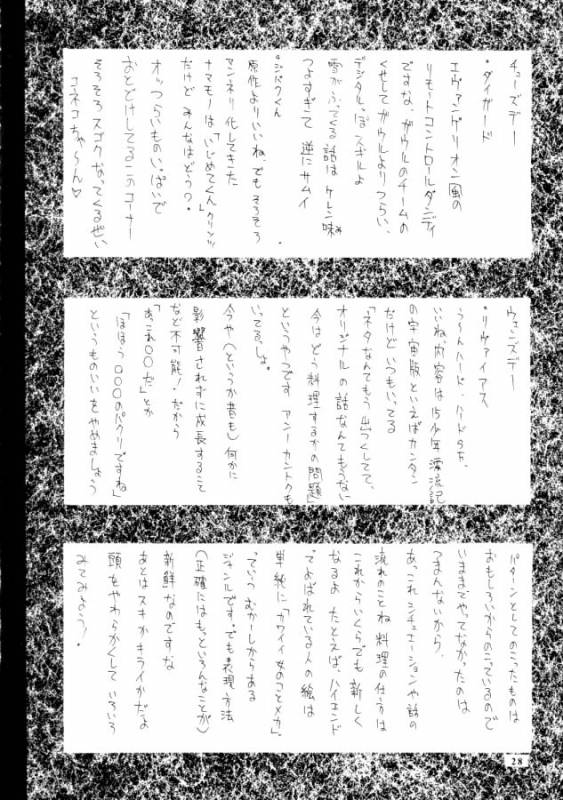 チューズデー
・ダイガード
エヴァンゲリオン風の
リモートコントロールダンディ
ですな。ガウルのチームの
くせしてガウルよりつらい、
デジタルっぽスギルよ
雪がふってくる話はケレン味み
つよすぎて 逆にサムイ
・ジバクくん
原作よりいいね でもそろそろ
マンネリ化してきた
ナマモノは「いじめてくん」クリソツ
だけど みんなはどう?・
オッつらいものいっぱいで
おとどけしてるこのコーナー
そろそろスゴクなってくるぜい
コネコちゃ〜ん♡
ウェンズデー
・リヴァイアス
う〜んハード、ハードSFを、
いいね 内容は 15少年漂流記
の宇宙版といえばカンタン
だけど いつもいってる
「ネタなんてもう出つくしてて、
オリジナルの話なんてもうない
今はどう料理するかの問題」
というやつです アン・カントクも
いってるしょ。
今や(というか昔も)何かに
影響されずに成長すること
など不可能!だから
「あ、これ〇〇だ」とか
「ほほう 〇〇〇のパクリですね」
というものいいをやめましょう
パターンとしてのこったものは
おもしろいからのこっているので
いままでやってなかったのは
つまんないから、
あ、これシチュエーションや話の
流れのことね 料理の仕方は
これからいくらでも新しく
なるよ たとえば、ハイエンド
ってよばれている人の絵は
単純に「カワイイ女のコとメカ」
っていう むかーしからある
ジャンルです。でも表現方法
(正確にはもっといろんなことが)
新鮮なのですな
あとはスキかキライかだよ
頭をやわらかくして いろいろ
みてみよう!
28